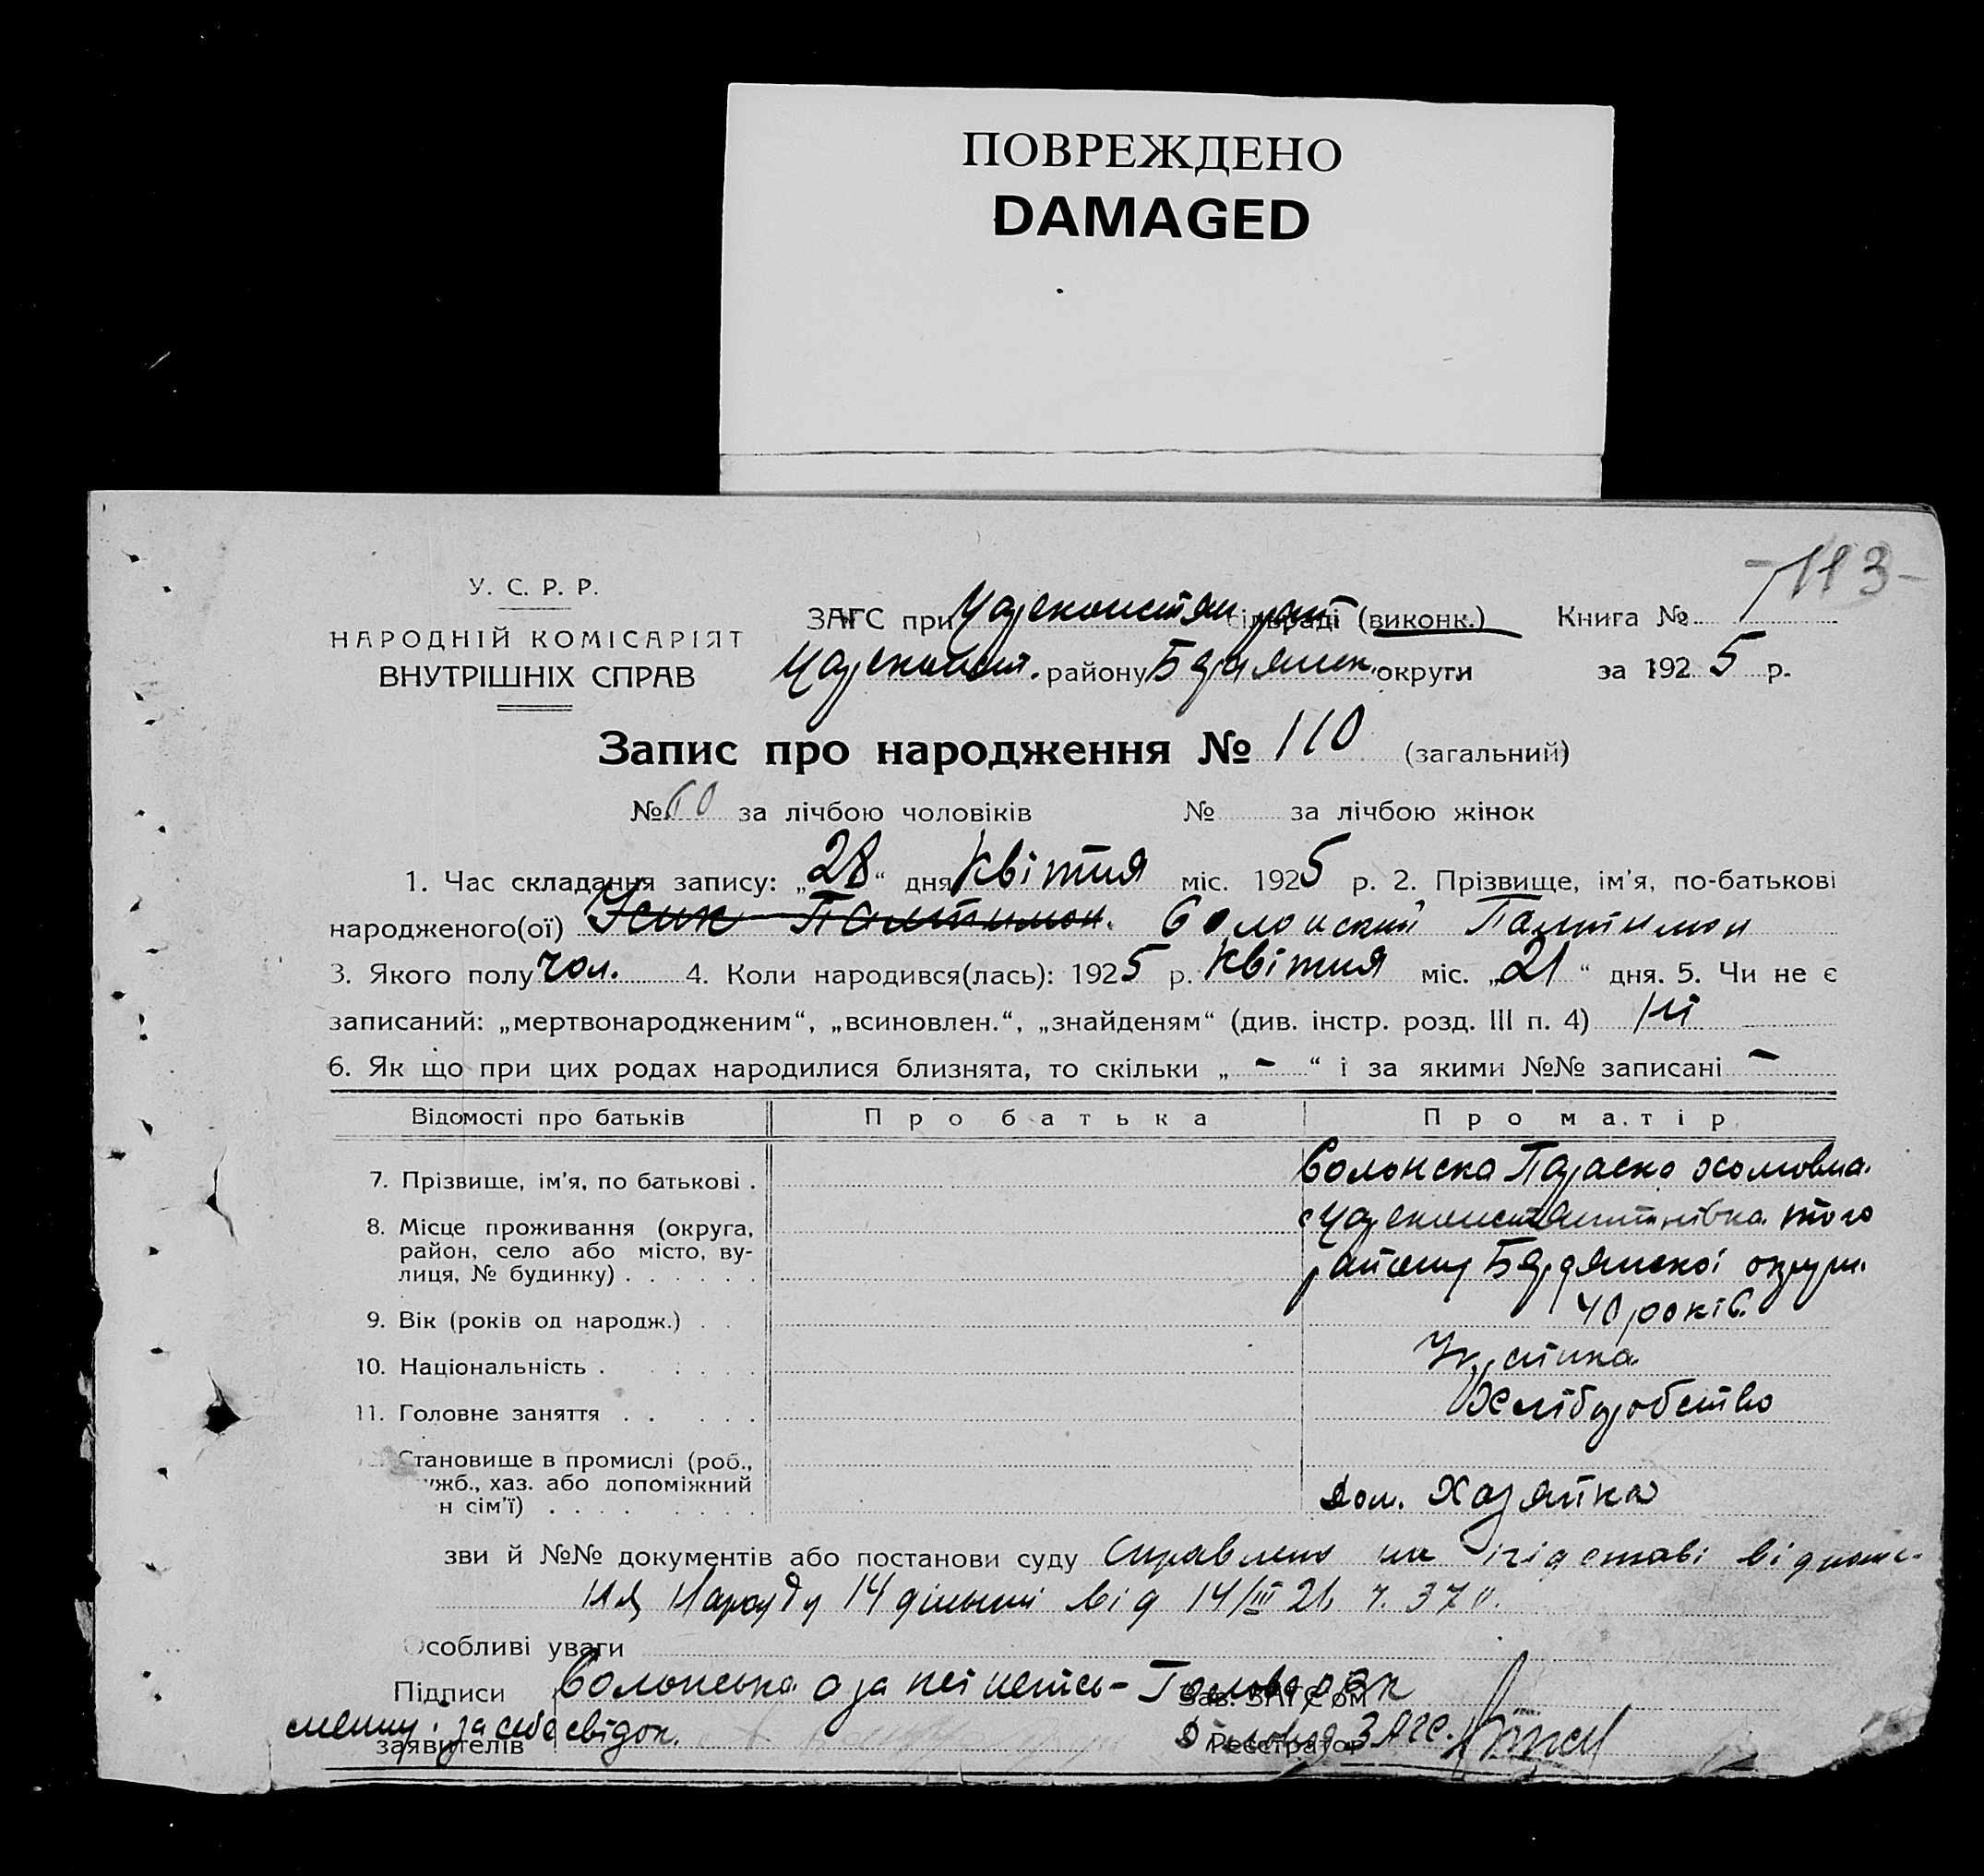 ПОВРЕЖДЕНО
DAMAGED
-113-
У. С. Р. Р.
НАРОДНІЙ КОМІСАРІЯТ
ВНУТРІШНІХ СПРАВ
ЗАГС при Цареконстян рай сільраді (виконк.) Книга № 1
Цареконст. району Бердянськ. округи за 1925 р.
Запис про народження № 110 (загальний)
№ 60 за лічбою чоловіків № за лічбою жінок
1. Час складання запису: „28“ дня Квітня міс. 1925 р. 2. Прізвище, ім'я, по-батькові
народженого(ої) Усик Пантимон. Солонский Пантимон
3. Якого полу чол. 4. Коли народився(лась): 1925 р. Квітня міс. „21“ дня. 5. Чи не є
записаний: „мертвонародженим“, „всиновлен.“, „знайденям“ (див. інстр. розд. III п. 4) Ні
6. Як що при цих родах народилися близнята, то скільки „ - “ і за якими №№ записані -
Відомості про батьків Про батька Про матір
7. Прізвище, ім'я, по батькові . Солонска Параска
8. Місце проживання (округа, с Цареконстянтинівка того
район, село або місто, ву-
лиця, № будинку) . . . . . . району Бердянскоі округи.
9. Вік (років од народж.) . . 40 років.
10. Національність . . . . . .
11. Головне заняття . . . . . Хліборобство
Становище в промислі (роб.,
ужб., хаз. або допоміжний
н сім'ї) . . . . . . . . Дом. Хазяйка
зви й №№ документів або постанови суду Справлено на підставі віднош-
ня Нарсуду 14 дільниці від 14/III 2 ч. 370.
Особливі уваги
Підписи Солонська а за неі непись- Голова Зав. ЗАГС'ом
менну за себе свідок.
заявителів Реєстратор ЗАГС.